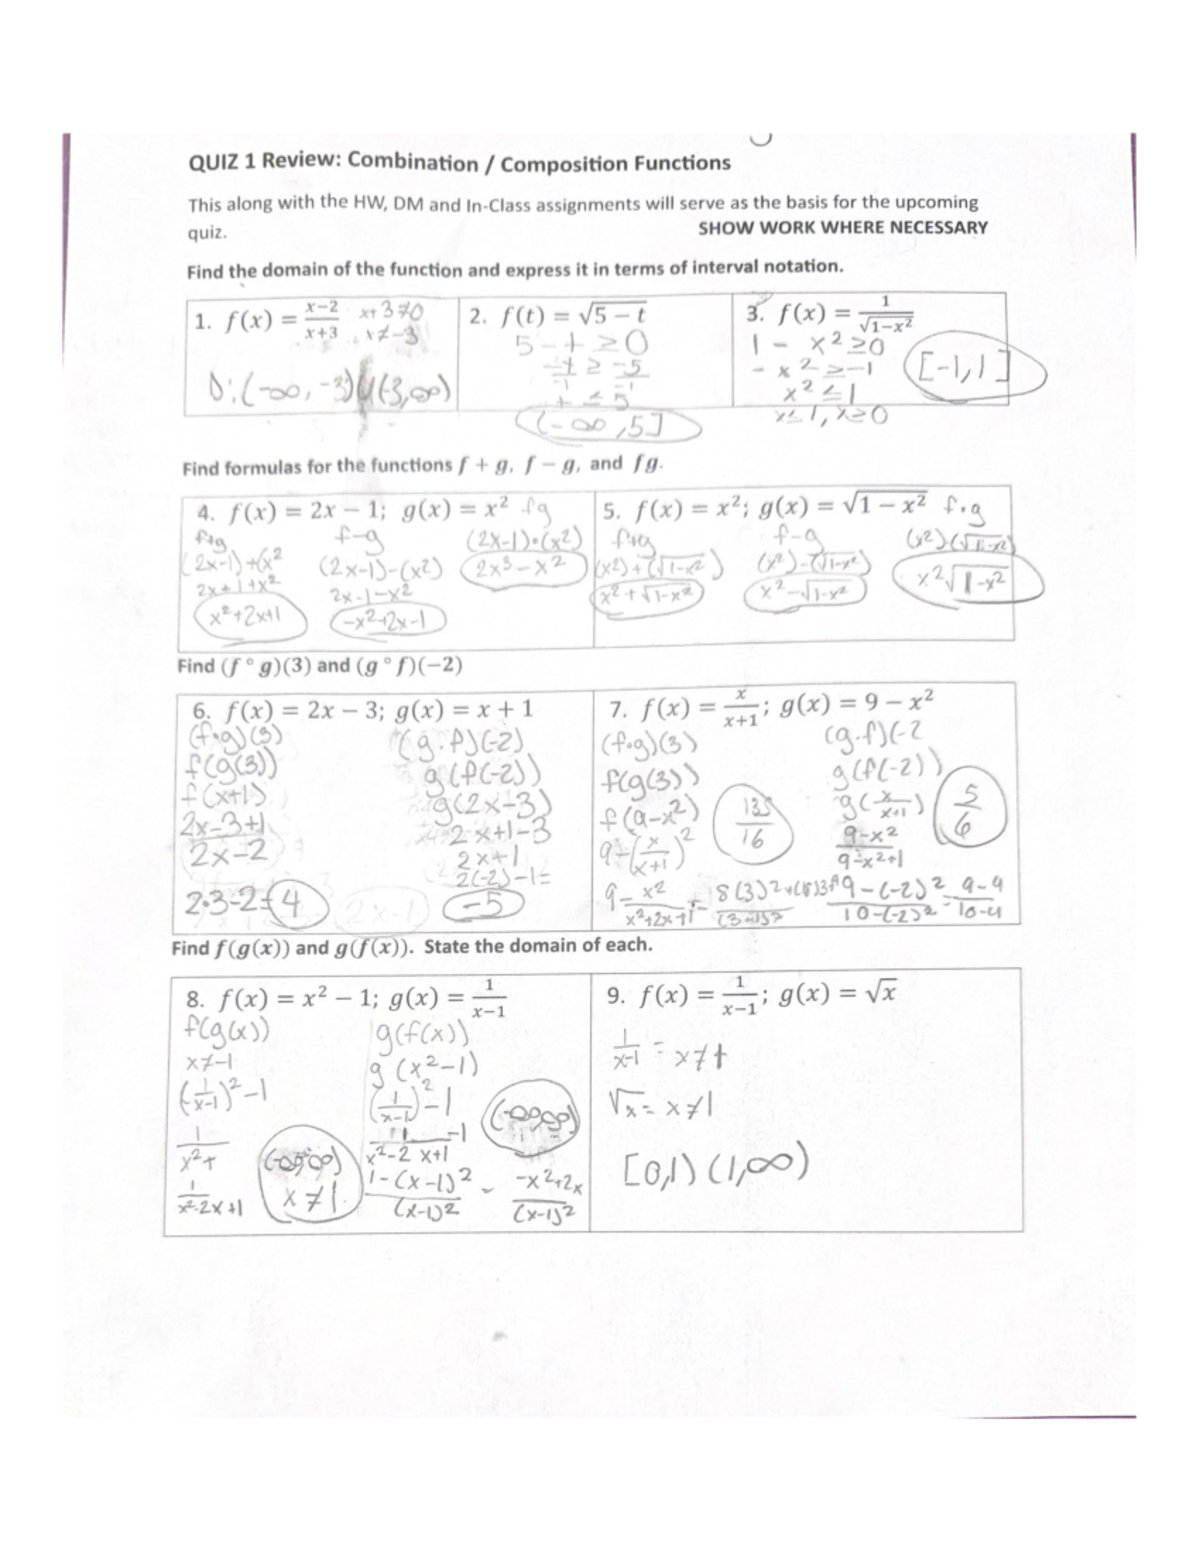 QUIZ 1 Review: Combination / Composition Functions
This along with the HW, DM and In-Class assignments will serve as the basis for the upcoming
quiz. SHOW WORK WHERE NECESSARY
Find the domain of the function and express it in terms of interval notation.
1. f(x) = (x−2)/(x+3)
x+3≠0
x≠-3
D:(-∞, -3)U(-3,∞)
2. f(t) = √(5 − t)
5-t≥0
-t ≥ -5
-1 -1
t ≤ 5
(-∞,5]
3. f(x) = 1/√(1−x²)
1 - x²≥0
-x²≥-1
x²≤1
x≤1, x≥0
[-1,1]
Find formulas for the functions f + g, f − g, and fg.
4. f(x) = 2x − 1; g(x) = x²
f+g
(2x-1)+(x²
2x+1+x²
x²+2x+1
f-g
(2x-1)-(x²)
2x-1-x²
-x²+2x-1
fg
(2x-1)•(x²)
2x³-x²
5. f(x) = x²; g(x) = √(1 − x²)
f+g
(x²)+(√1-x²)
x²+√1-x²
f-g
(x²)-(√1-x²)
x²-√1-x²
f•g
(x²)(√1-x²)
x²√1-x²
Find (f ° g)(3) and (g ° f)(−2)
6. f(x) = 2x − 3; g(x) = x + 1
(f•g)(3)
f(g(3))
f(x+1)
2x-3+1
2x-2
2•3-2=4
(g•f)(-2)
g(f(-2))
g(2x-3)
2x+1-3
2x+1
2(-2)-1=
-5
7. f(x) = x/(x+1); g(x) = 9 − x²
(f•g)(3)
f(g(3))
f(9-x²)
9-(x/(x+1))²
9-x²/(x²+2x+1)
135/16
(g•f)(-2
g(f(-2))
g(x/(x+1))
9-x²/9-x²+1
9-(-2)²/10-(-2)² = 9-4/10-4
5/6
Find f(g(x)) and g(f(x)). State the domain of each.
8. f(x) = x² − 1; g(x) = 1/(x−1)
f(g(x))
x≠-1
(1/(x-1))²-1
1/x²+
1/x²-2x+1
(-∞,∞)
x≠1
g(f(x))
g(x²-1)
(1/(x-1))²-1
1/x²-2x+1 -1
1-(x-1)²/(x-1)² - -x²+2x/(x-1)²
(-∞,∞)
9. f(x) = 1/(x−1); g(x) = √x
1/(x-1) = x≠1
√x = x≠1
[0,1) (1,∞)